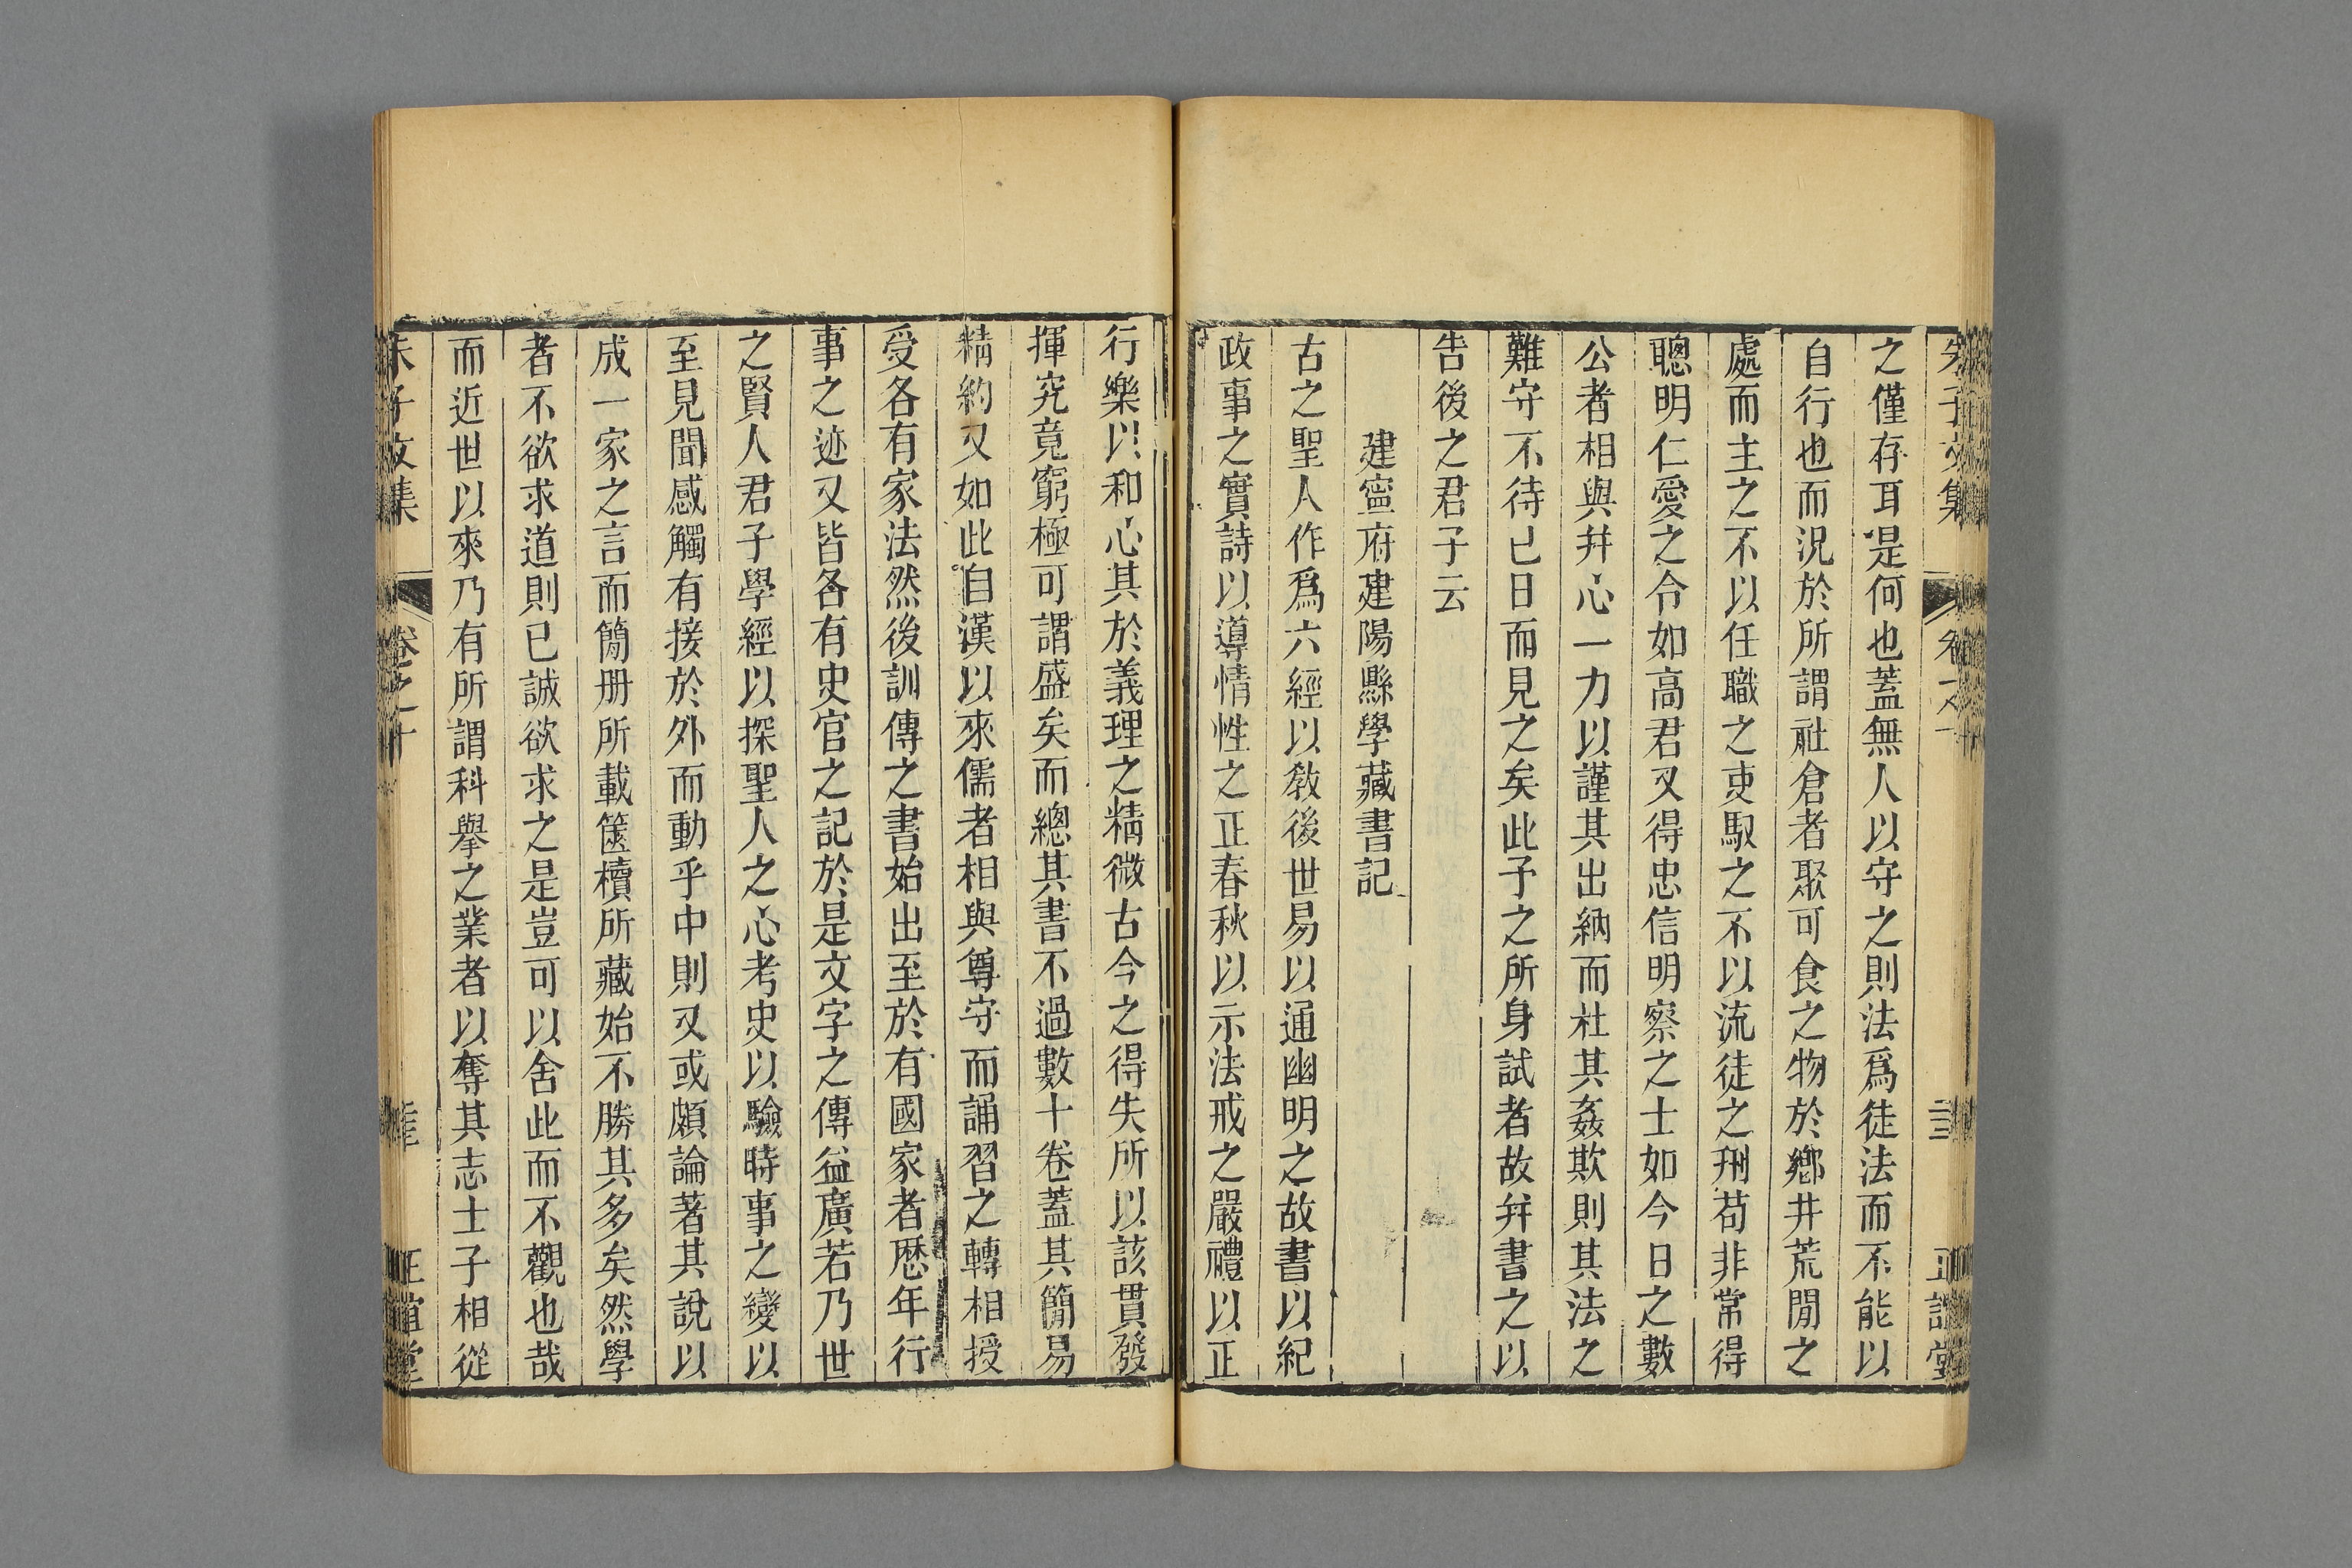 之僅存耳是何也蓋無人以守之則法爲徒法而不能以
自行也而況於所謂社倉者聚可食之物於鄉井荒閒之
處而主之不以任職之吏馭之不以流徒之刑苟非常得
聰明仁愛之令如高君又得忠信明察之士如今日之數
公者相與并心一力以謹其出納而杜其姦欺則其法之
難守不待已日而見之矣此予之所身試者故并書之以
告後之君子云
建寧府建陽縣學藏書記
古之聖人作爲六經以敎後世易以通幽明之故書以紀
政事之實詩以導情性之正春秋以示法戒之嚴禮以正
行樂以和心其於義理之精微古今之得失所以該貫發
揮究竟窮極可謂盛矣而總其書不過數十卷蓋其簡易
精約又如此自漢以來儒者相與尊守而誦習之轉相授
受各有家法然後訓傳之書始出至於有國家者歷年行
事之迹又皆各有史官之記於是文字之傳益廣若乃世
之賢人君子學經以探聖人之心考史以驗時事之變以
至見聞感觸有接於外而動乎中則又或頗論著其說以
成一家之言而簡册所載篋櫝所藏始不勝其多矣然學
者不欲求道則已誠欲求之是豈可以舍此而不觀也哉
而近世以來乃有所謂科舉之業者以奪其志士子相從
朱子文集 卷之十 正誼堂